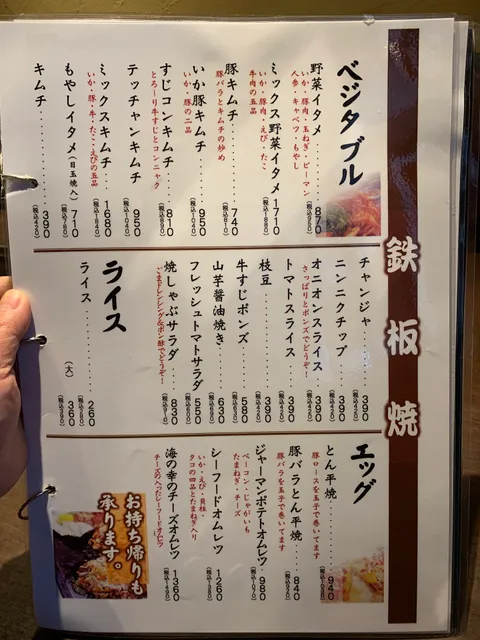 鉄板焼
ベジタブル
野菜イタメ………870
(税込950)
いか・豚肉・玉ねぎ・ピーマン
人参・キャベツ・もやし
ミックス野菜イタメ1710
いか・豚肉・えび・たこ
牛肉の五品
豚キムチ………740
豚バラとキムチの炒め
いか豚キムチ………950
(税込1040)
いか・豚の二品
すじコンキムチ………810
とろ～り牛すじとコンニャク
テッチャンキムチ 950
(税込1040)
ミックスキムチ………1680
いか・豚・牛・たこ・えびの五品
もやしイタメ(目玉焼入)710
(税込780)
キムチ………390
(税込420)
チャンジャ………390
(税込420)
ニンニクチップ………390
(税込420)
オニオンスライス 390
(税込420)
さっぱりとポンズでどうぞ!
トマトスライス………390
(税込420)
枝豆………390
(税込420)
牛すじポンズ………580
(税込630)
山芋醤油焼き………630
(税込690)
フレッシュトマトサラダ 550
焼しゃぶサラダ………830
(税込910)
ごまドレッシング&ポン酢でどうぞ!
ライス
ライス………260
(大) 360
(税込390)
エッグ
とん平焼………940
豚ロースを玉子で巻いてます
豚バラとん平焼………840
(税込920)
豚バラを玉子で巻いてます
ジャーマンポテトオムレツ・980
(税込1070)
ベーコン・じゃがいも
たまねぎ・チーズ
シーフードオムレツ………1260
(税込1380)
いか・えび・貝柱・
タコの四品とたまねぎ入り
海の幸のチーズオムレツ 1360
(税込1490)
チーズの入ったシーフードオムレツ
お持ち帰りも
承ります。